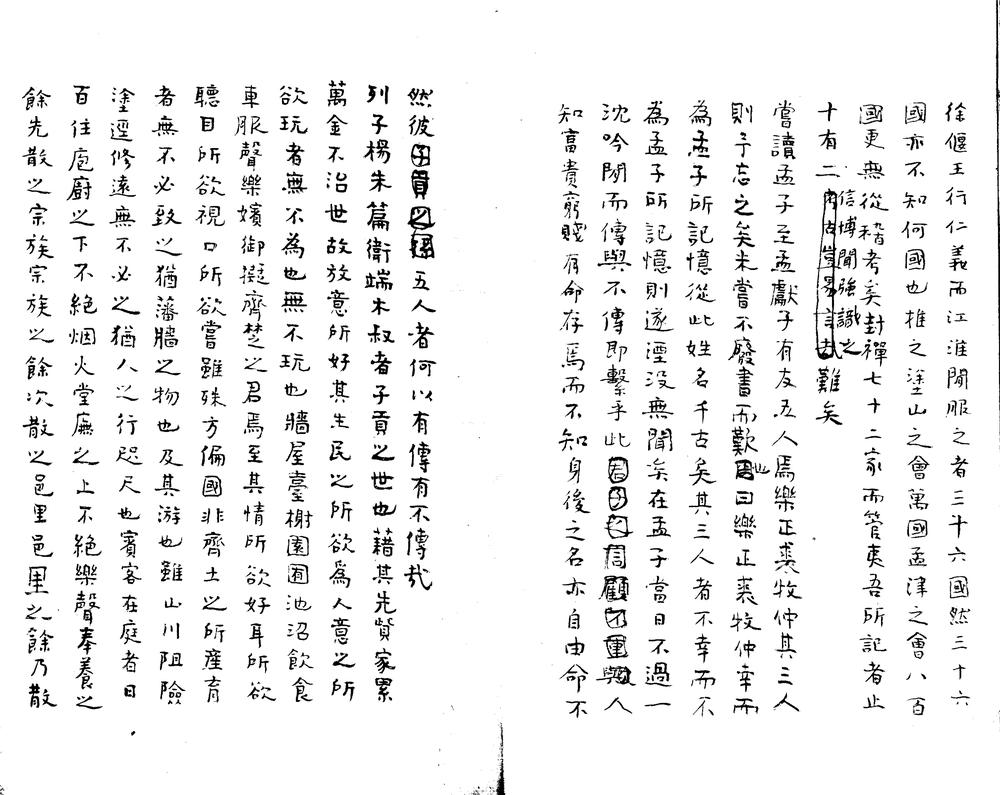 徐偃王行仁義而江淮閒服之者三十六國然三十六
國亦不知何國也推之塗山之會萬國孟津之會八百
國更無從稽考矣封禪七十二家而管夷吾所記者止
十有二信博聞強識之難矣
嘗讀孟子至孟獻子有友五人焉樂正裘牧仲其三人
則予忘之矣未嘗不廢書而歎也曰樂正裘牧仲幸而
為孟子所記憶從此姓名千古矣其三人者不幸而不
為孟子所記憶則遂湮没無聞矣在孟子當日不過一
沈吟閒而傳與不傳即繫乎此人
知富貴窮賤有命存焉而不知身後之名亦自由命不
然彼五人者何以有傳有不傳哉
列子楊朱篇衛端木叔者子貢之世也藉其先貲家累
萬金不治世故放意所好其生民之所欲為人意之所
欲玩者無不為也無不玩也牆屋臺榭園囿池沼飲食
車服聲樂嬪御擬齊楚之君焉至其情所欲好耳所欲
聽目所欲視口所欲嘗雖殊方偏國非齊土之所產育
者無不必致之猶藩牆之物也及其游也雖山川阻險
塗逕修遠無不必之猶人之行咫尺也賓客在庭者日
百住庖廚之下不絕烟火堂廡之上不絕樂聲奉養之
餘先散之宗族宗族之餘次散之邑里邑里之餘乃散